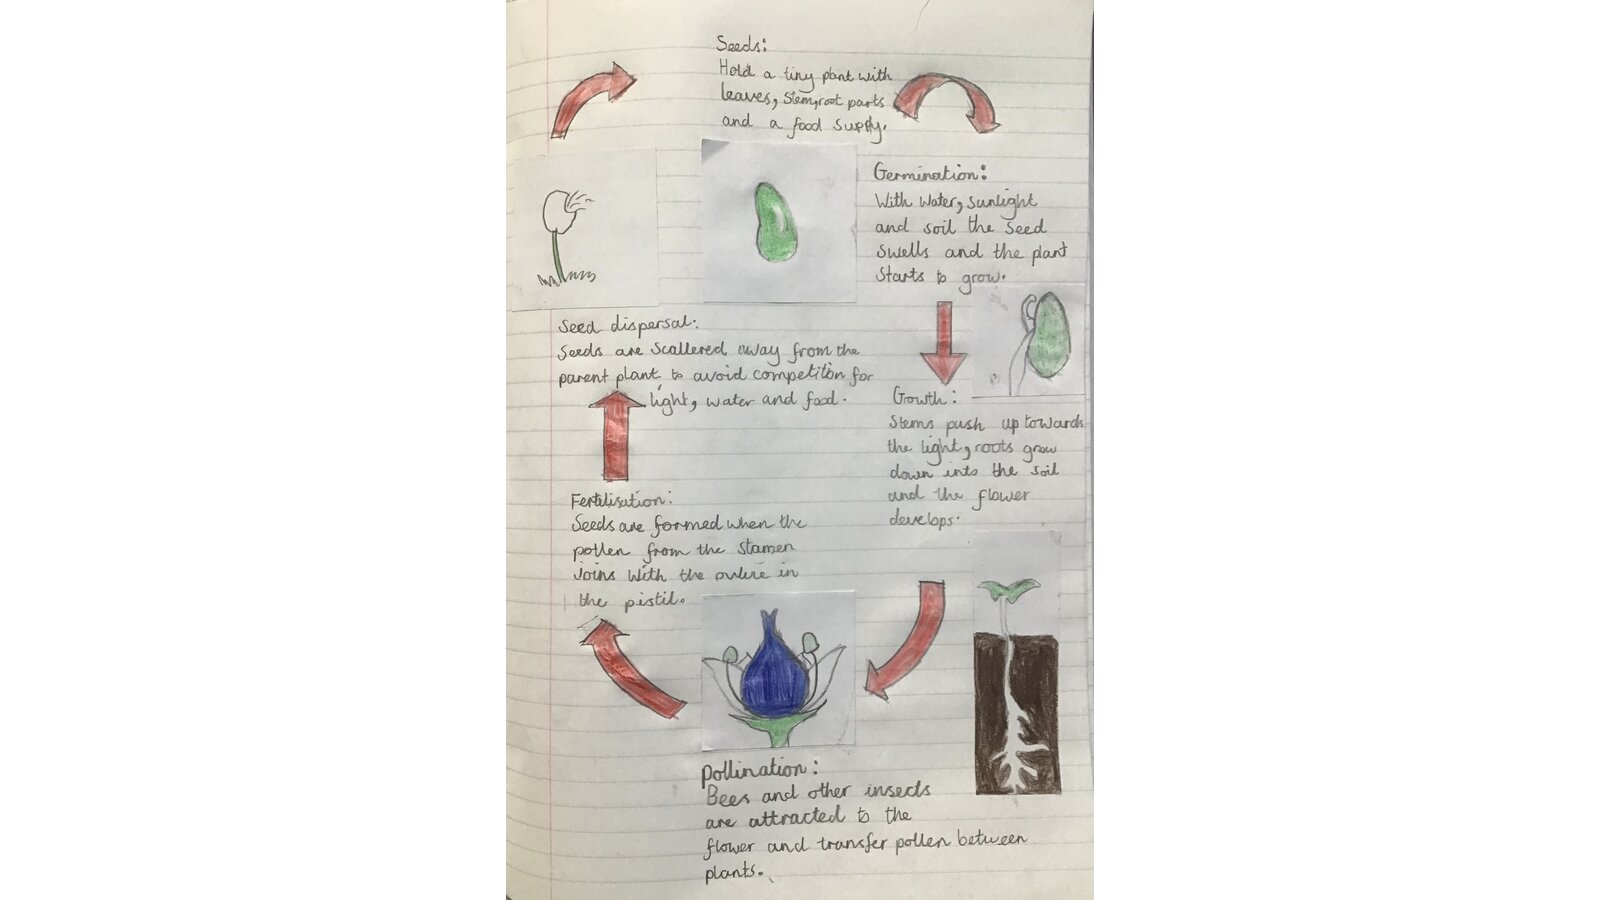 Seeds:
Hold a tiny plant with
leaves, stem, root parts
and a food supply.
Germination:
With water, sunlight
and soil the seed
swells and the plant
starts to grow.
Growth:
Stems push up towards
the light, roots grow
down into the soil
and the flower
develops.
Pollination:
Bees and other insects
are attracted to the
flower and transfer pollen between
plants.
Fertilisation:
Seeds are formed when the
pollen from the stamen
joins with the in
the pistil.
Seed dispersal:
Seeds are scallered away from the
parent plant to avoid competition for
light, water and food.